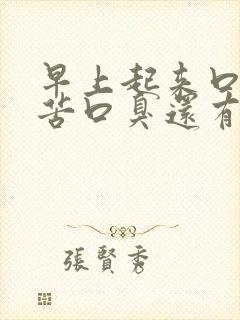 早上起来口
苦口臭還有
張賢秀